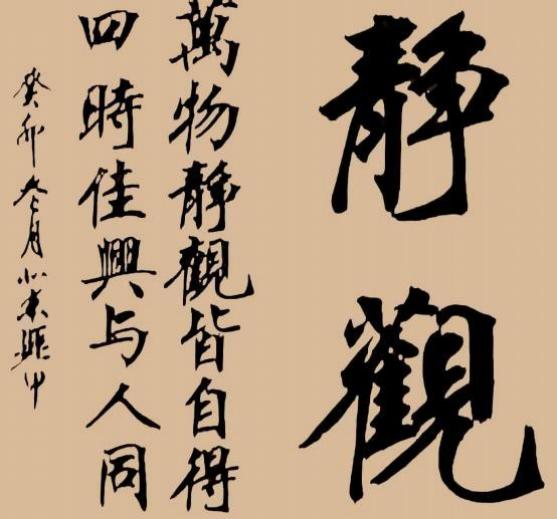 靜觀
萬物靜觀皆自得
四時佳興与人同
癸卯冬月小春飛中